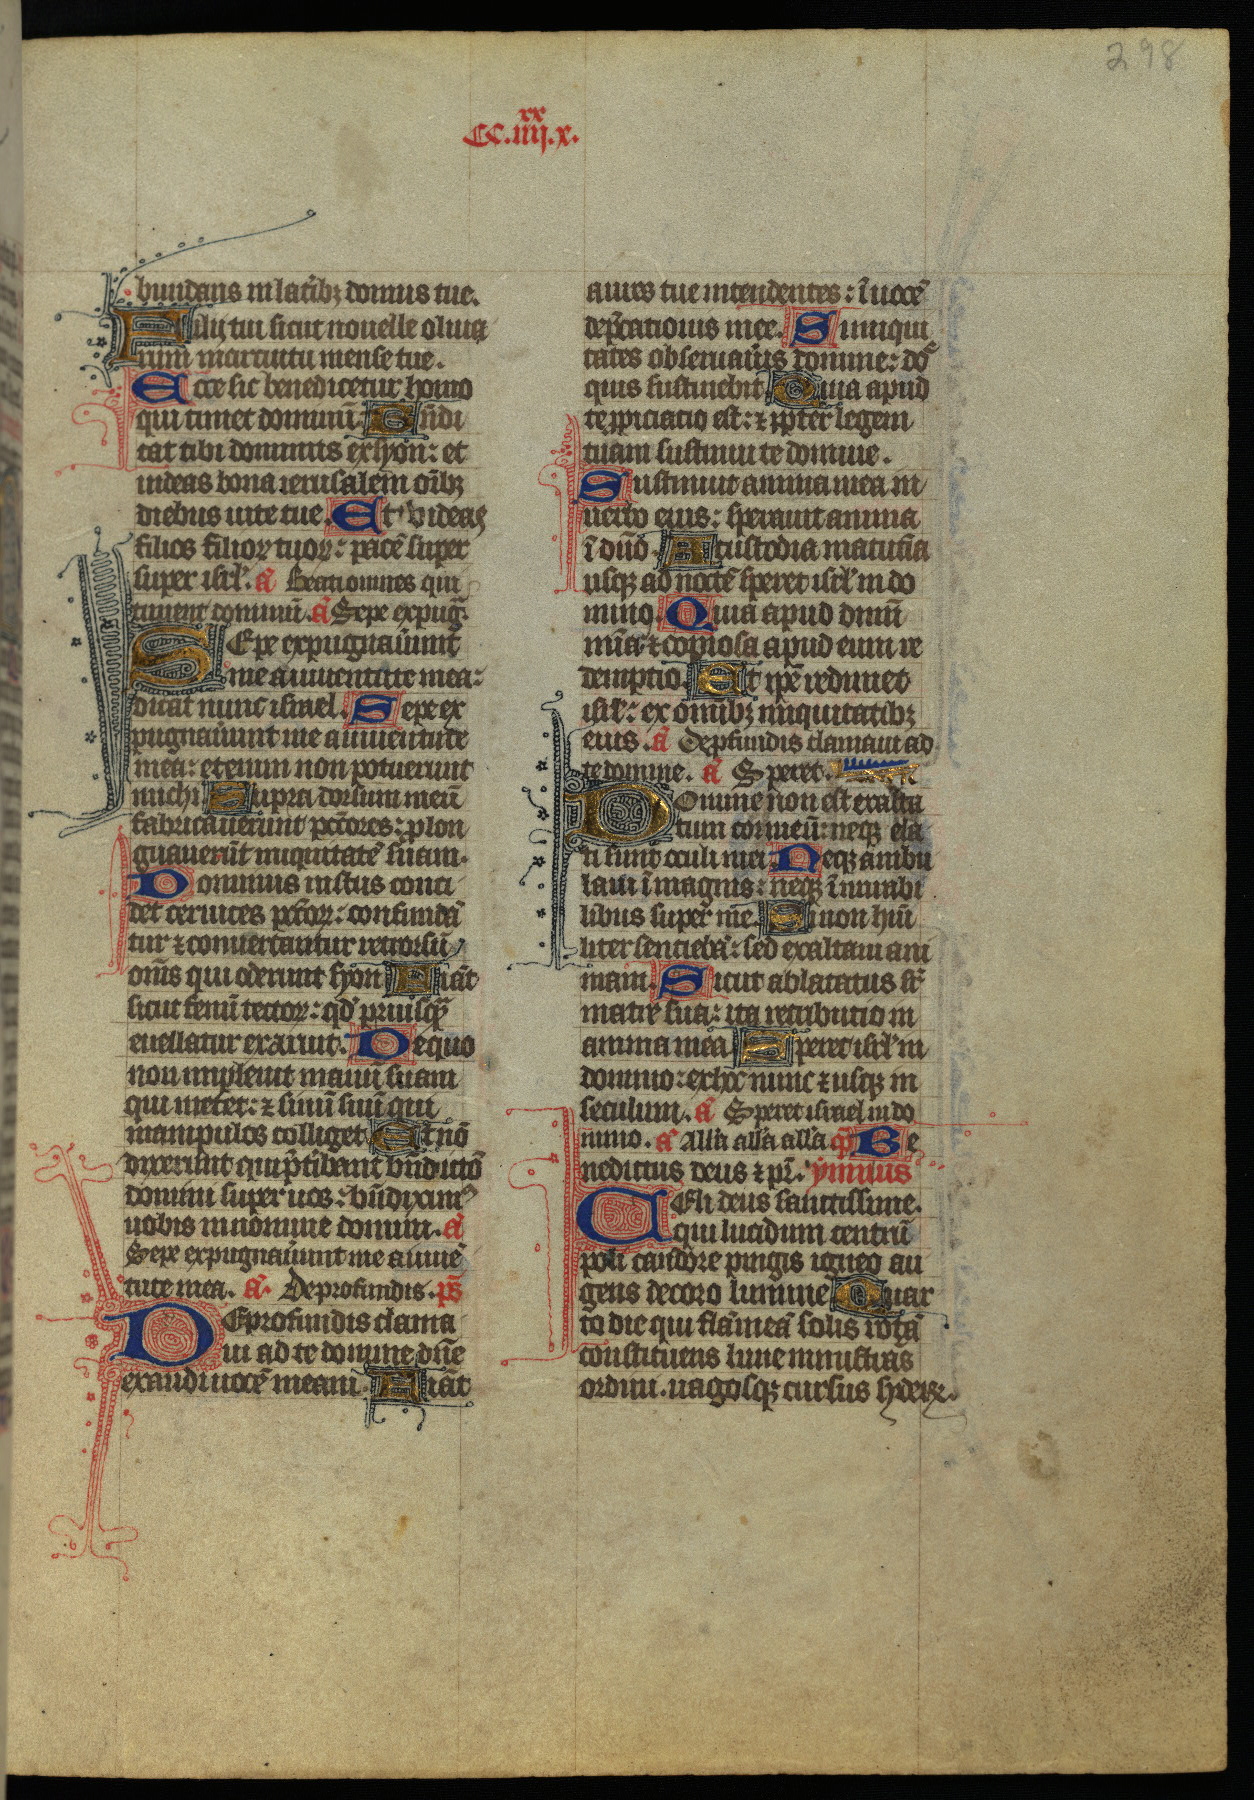 298
xx
CC.iiij.x.
bundans in lat̾ibꝫ domus tue.
Filij tui sicut nouelle oliua
rum in circuitu mense tue.
Ecce sic benedicetur homo
qui timet dominum. Bn̄di
cat tibi dominus ex syon: et
uideas bona ierusalem oībꝫ
diebus uite tue. Et uideas
filios filioꝝ tuoꝝ: pacē super
super isrl̾. a Beati omnes qui
timent dominū. a Sepe expug̾.
Sepe expugnauer̄unt
me a iuuentute mea:
dicat nunc israel. Sepe ex
pugnauer̄unt me a iuuentute
mea: etenim non potuerunt
michi Supra dorsum meū
fabricauerunt pctōres: plon
gauerūt iniquitatē suam.
Dominus iustus conci
det ceruices pctōꝝ: confundā
tur ⁊ conuertantur retrorsū
om̄s qui oderunt syon Fiāt
sicut fenū tectoꝝ: qd̾ priusq̄
euellatur exaruit. De quo
non impleuit manū suam
qui metet: ⁊ sinū suū qui
manipulos colliget Et nō
dixerunt qui p̄teribant bn̄dictō
domini super uos: bn̄dixim⁹
uobis in nomine domini. a
Sepe expugnauer̄unt me a iuuē
tute mea. a De profundis. ps̄
De profundis clama
ui ad te domine dn̄e
exaudi uocē meam. Fiāt
aures tue intendentes: ī uocē
dep̄cationis mee. Si iniqui
tates obseruau̾is domine: dō
quis sustinebit Quia apud
te ꝓpiciatio est: ⁊ ꝓpter legem
tuam sustinui te domine.
Sustinuit anima mea in
uerbo eius: sperauit anima
ī dn̄o A custodia matutīa
usqꝫ ad noctē speret isrl̾ in do
mino. Quia apud dn̄m
mīa ⁊ copiosa apud eum re
demptio. Et ip̄e redimet
isrl̾: ex omībꝫ iniquitatibꝫ
eius. a De ꝓfundis clamaui ad
te domine. a Speret.
Domine non est exalta
tum cor meū: neqꝫ ela
ti sunt oculi mei Neqꝫ ambu
laui ī magnis: neqꝫ ī mirabi
libus super me. Si non humi
liter sentiebā: sed exaltaui ani
mam. Sicut ablactatus sr̄
matre sua: ita retributio in
anima mea Speret isrl̾ in
domino: ex hoc nunc ⁊ usqꝫ in
seculum. a Speret israel in do
mino. a all̾a all̾a all̾a Be
nedictus deus ⁊ pr̄. ymnus
Celi deus sanctissime.
qui lucidum centrū
poli candore pingis igneo au
gens decoro lumine Quar
to die qui flāmeā solis rotā
constituens lune ministras
ordini. uagosqꝫ cursus sideꝝ.